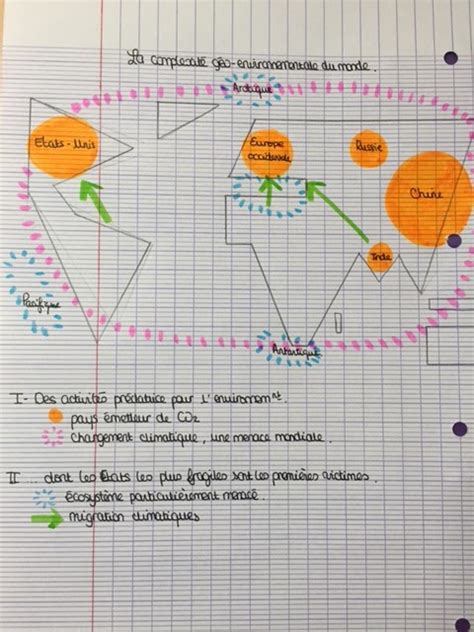 La complexité géo-environnementale du monde.
Arctique
Etats-Unis
Europe
occidentale
Russie
Chine
Inde
Pacifique
Antartique
I- Des activités prédatrice pour l'environnemnt.
pays émetteur de CO2
Changement climatique, une menace mondiale.
II ... dont les Etats les plus fragiles sont les premières victimes.
Écosystème particulièrement menacé.
migration climatiques